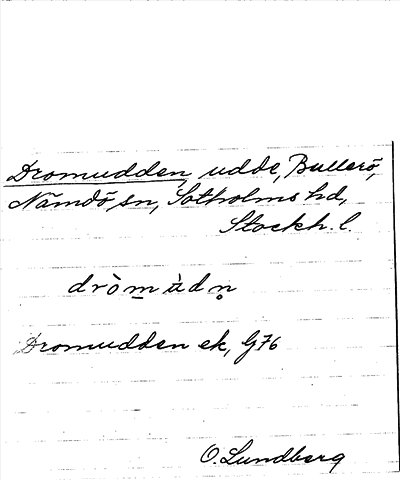 Dromudden, udde, Bullerö,
Nämdö sn, Sotholms hd,
Stockh. l.
dròm̲ ùdn̥
Dromudden ek, G76
O. Lundberg